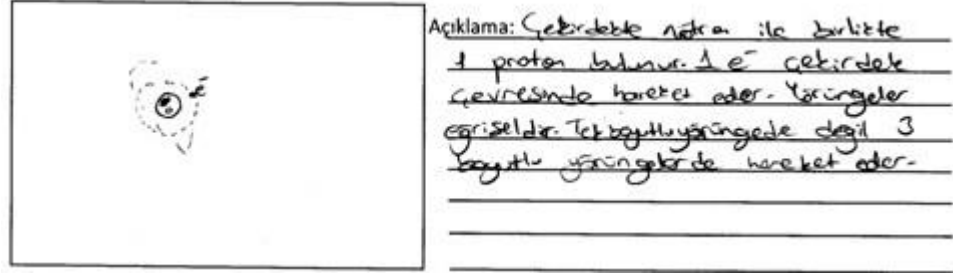 Açıklama: Çekirdekte nötron ile birlikte
1 proton bulunur. 1 e⁻ çekirdek
çevresinde hareket eder. Yörüngeler
eğriseldir. Tek boyutlu yörüngede değil 3
boyutlu yörüngelerde hareket eder.
e⁻